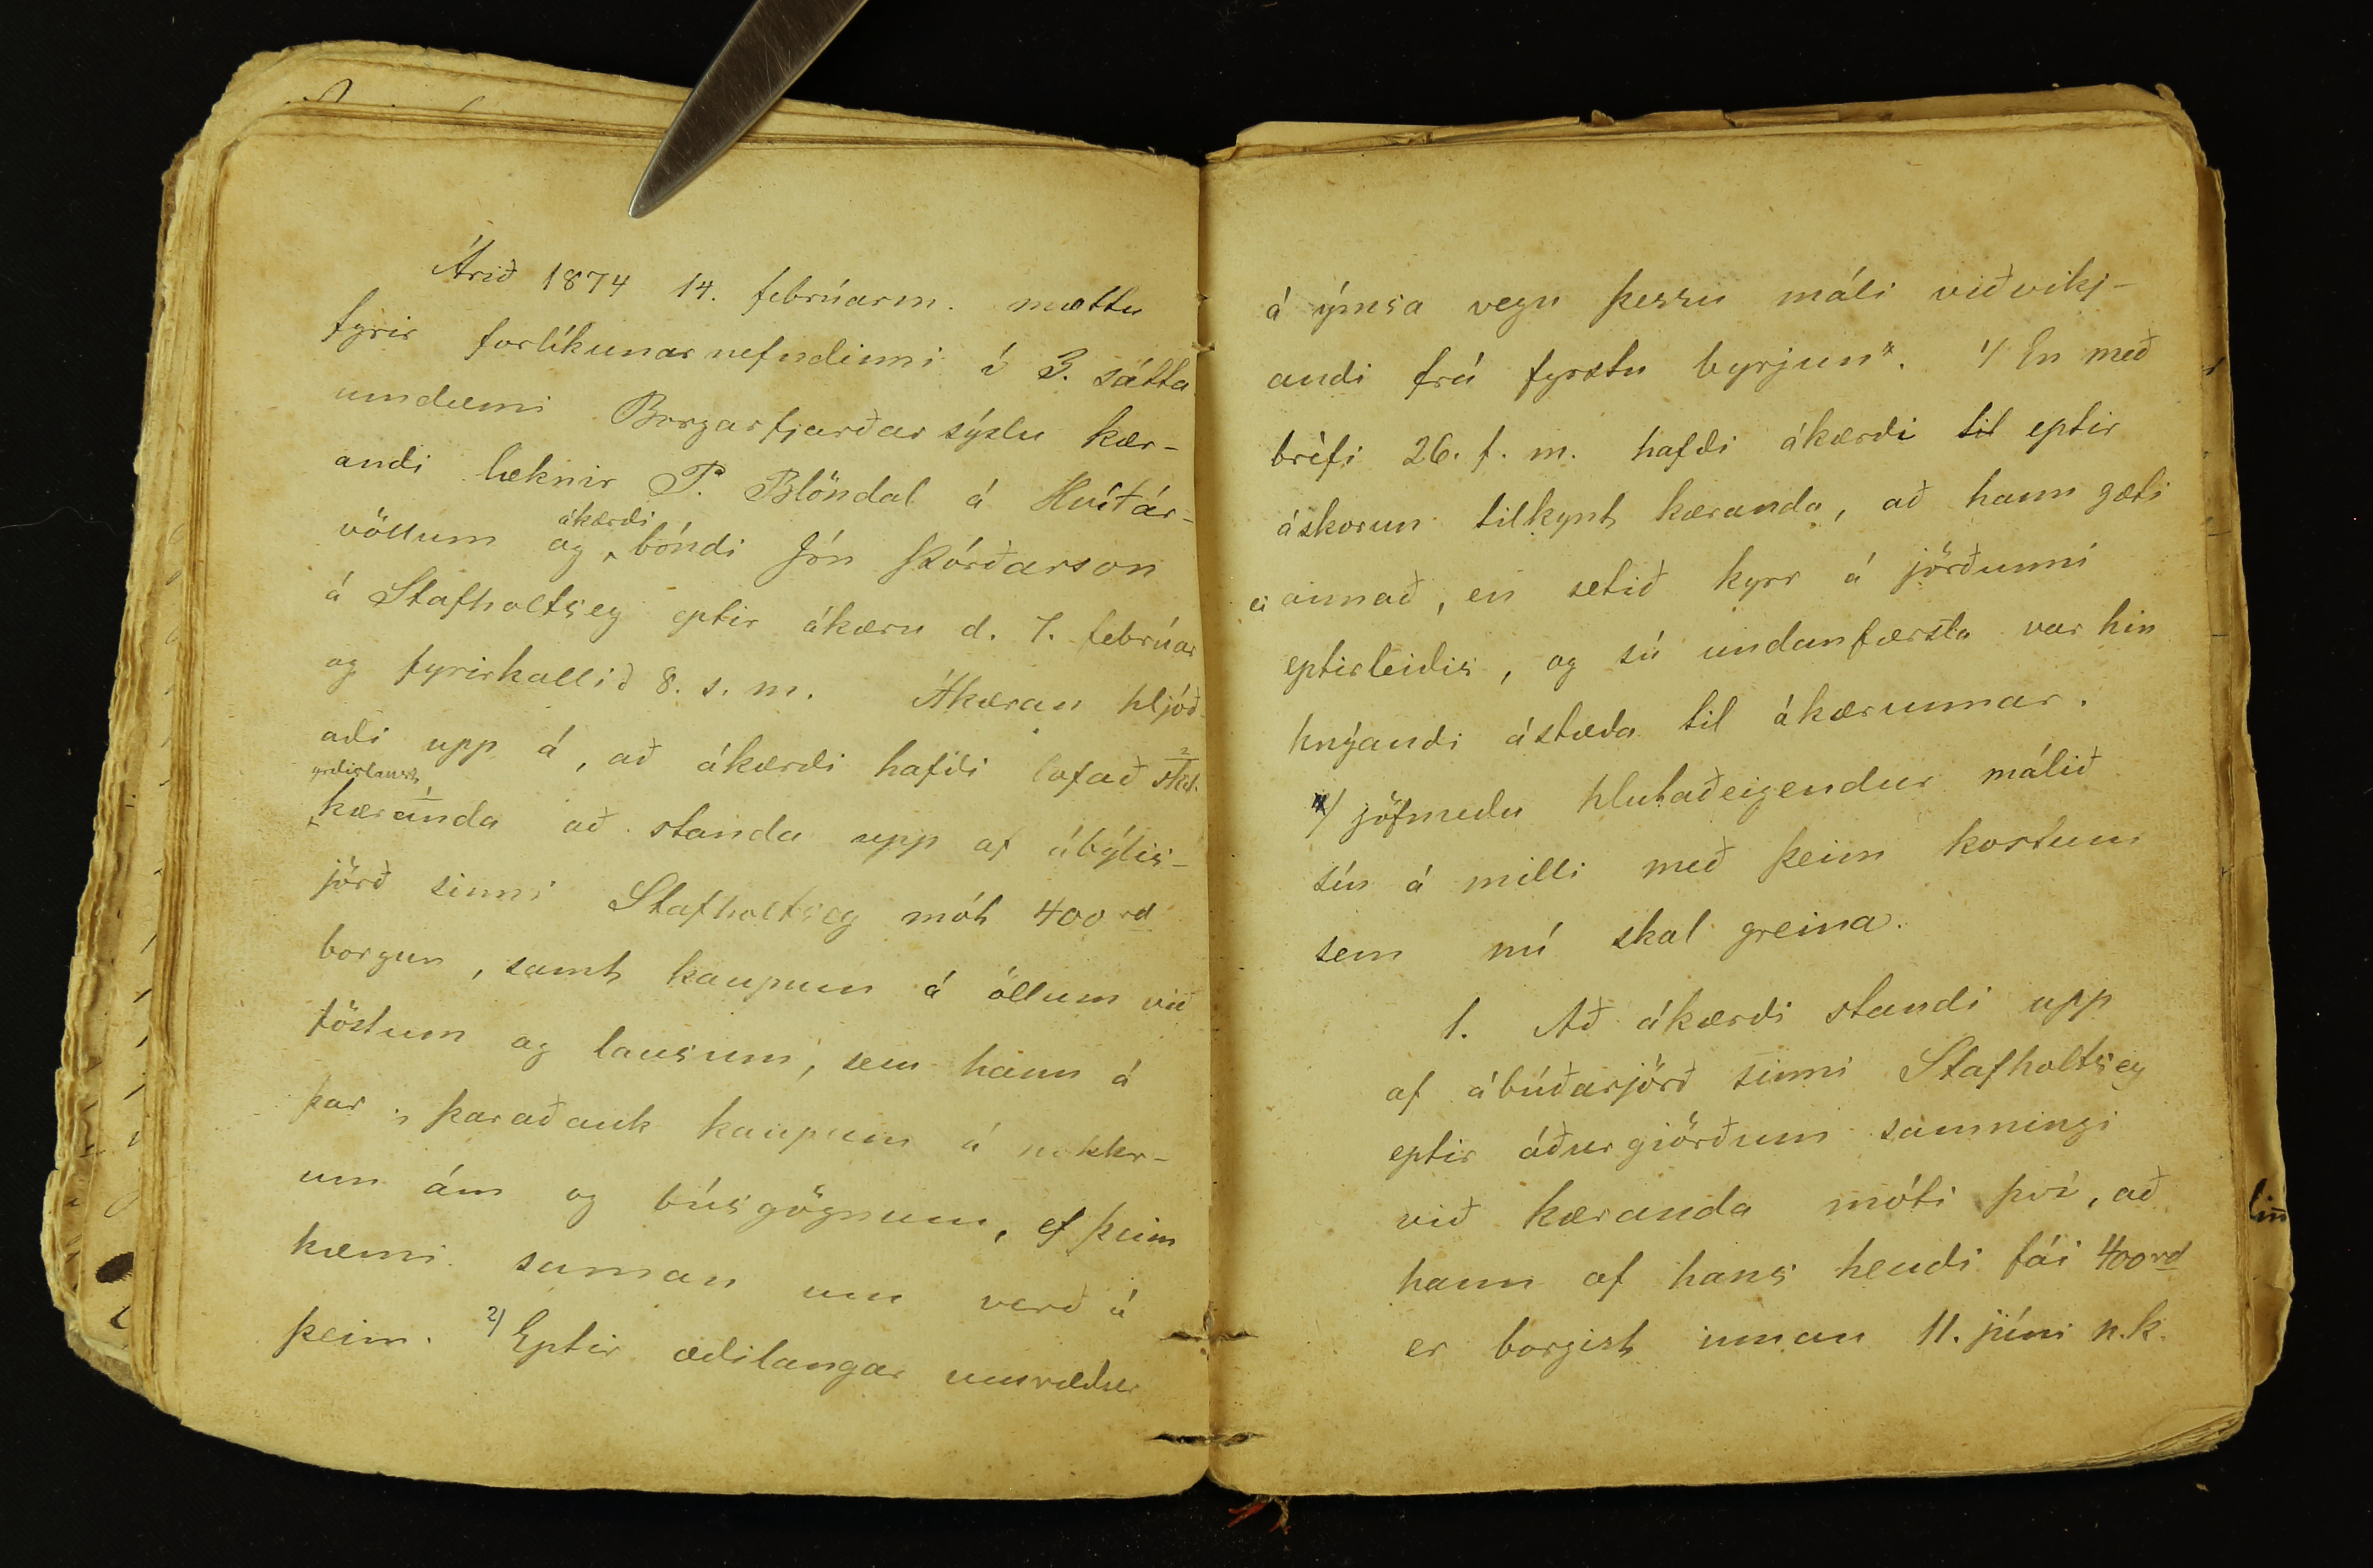 Árið 1874 14. febrúarm. mættu
fyrir forlíkunarnefndinni í 3. sátta
umdæmi Borgarfjarðarsýslu kær-
andi læknir P. Blöndal á Hvítár-
ákærdi
völlum og bóndi Jón Þórðarson
á Stafholtsey eptir ákæru d. 7. febrúar
og fyrirkallið 8. s. m. Ákæran hljóð
adi upp á, að ákærdi hafdi lofað
kæranda að standa upp af ábýlis-
jörð sinni Stafholtsey mót 400 rd
borgun, samt kaupum á öllum við
föstum og lausum, sem hann á
þar, þaraðauk kaupum á nokkr-
um ám og búsgögnum, ef þeim
kæmi saman um verð á
þeim. 2) Eptir ædilangar umrædur
á ýmsa vegu þessu máli viðvikj-
andi frá fyrstu byrjun". 1) En með
bréfi 26. f. m. hafdi ákærdi til eptir
áskorun tilkynt kæranda, að hann gæti
ei annað, en setið kyrr á jörðunni
eptirleidis, og sú undanfærsla var hin
knýandi ástæda til ákærunnar.
jöfnudu hlutaðeigendur málið
sín á milli með þeim kostum
sem nú skal greina.
1. Að ákærdi standi upp
af ábúðarjörð sinni Stafholtsey
eptir áðurgiörðum samningi
við kæranda móti því, að
hann af hans hendi fái 400 rd
er borgist innan 11. júní n.k.